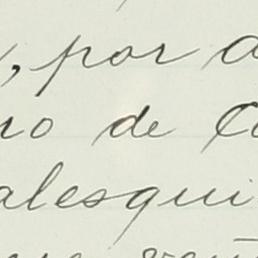 , por a
ro de Ca
alesqui